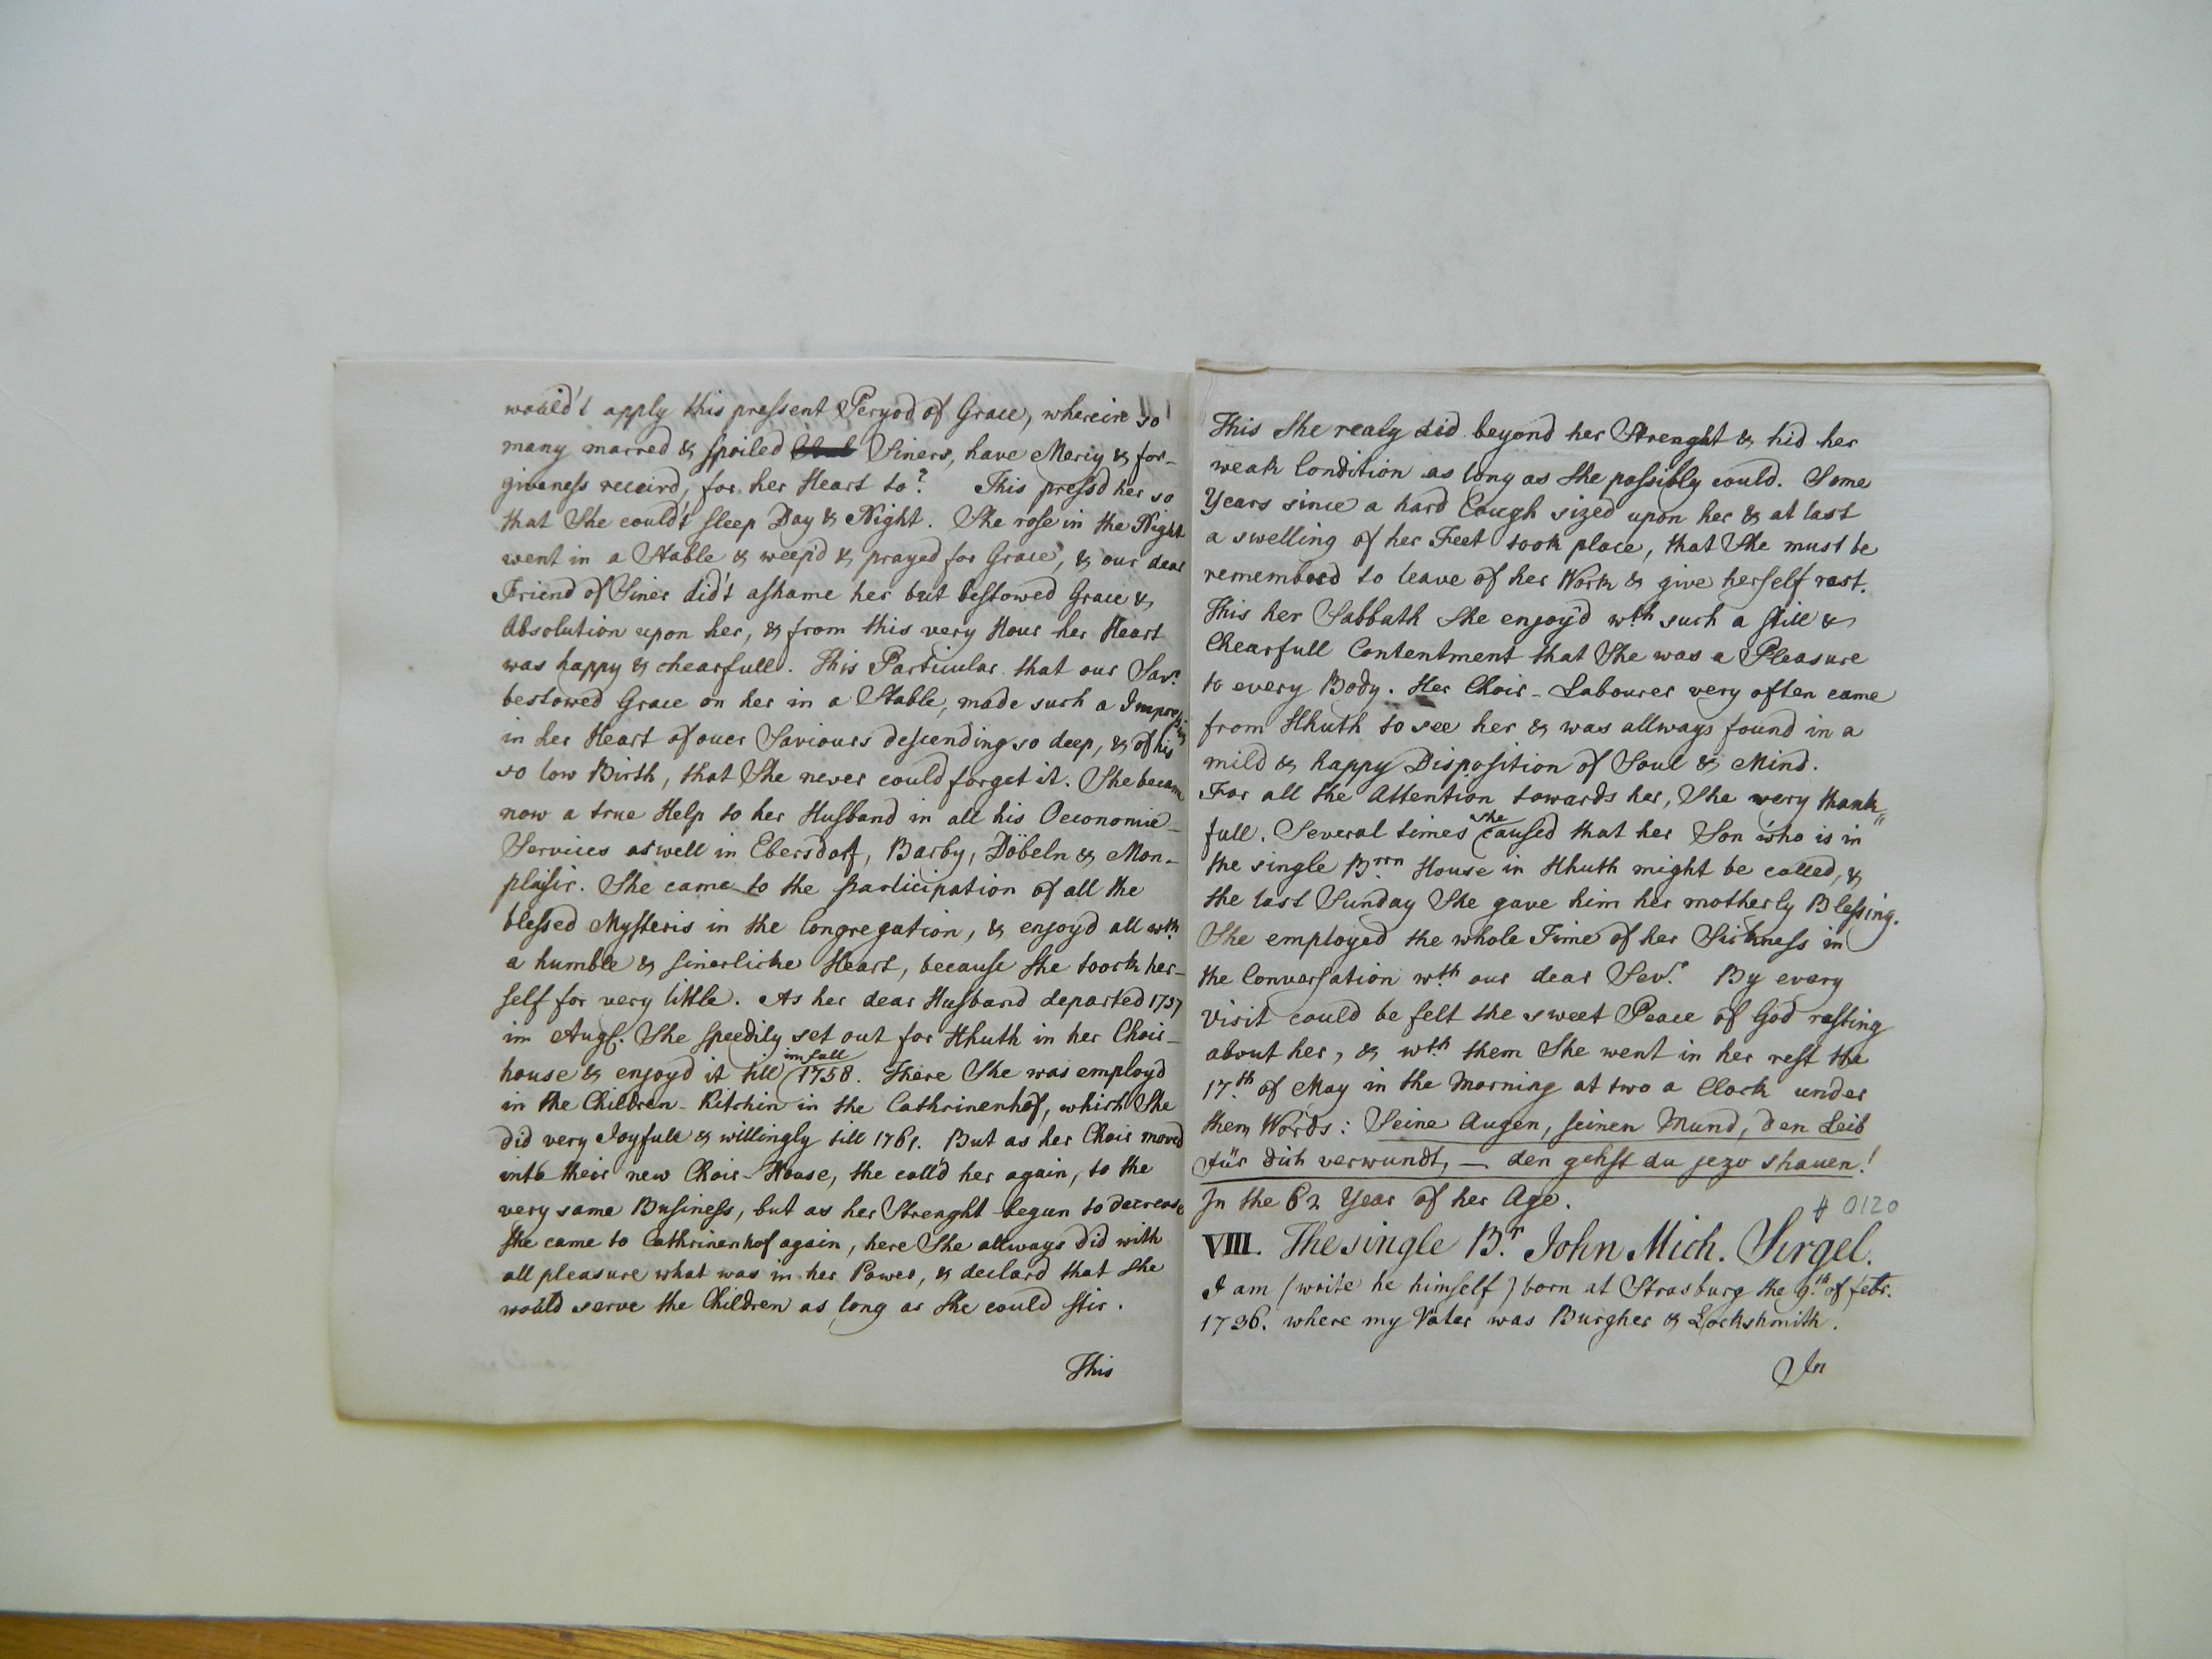 would't apply this pressent Peryod of Grace, wherein so
many marred & spoiled Siners, have Mercy & for-
giveness receivd, for her Heart to? This press'd her so
that She could't sleep Day & Night. She rose in the Night
went in a Stable & weep'd & prayed for Grace, & our dear
Friend of Siner did't ashame her but bestowed Grace &
Absolution upon her, & from this very Hour her Heart
was happy & chearfull. This Particular that our Savr.
bestowed Grace on her in a Stable, made such a Impression
in her Heart of ouer Saviours descending so deep, & of his
so low Birth, that She never could forget it. She becam
now a true Help to her Husband in all his Oeconomie-
Services aswell in Ebersdorf, Barby, Döbeln & Mon-
plaisir. She came to the participation of all the
blessed Mysteris in the Congregation, & enjoyd all wth.
a humble & sinerlicke Heart, because She toock her-
self for very little. As her dear Husband departed 1757
im Augs. She speedily set out for Hhuth in her Choir-
house & enjoyd it till im fall 1758. There She was employd
in the Children-Kitchin in the Cathrinenhof, which She
did very Joyfull & willingly till 1761. But as her Choir moved
into their new Choir-House, the call'd her again, to the
very same Business, but as her Strenght begun to decrease
She came to Cathrinenhof again, here She allways did with
all pleasure what was in her Power, & declard that She
would serve the Children as long as She could stir.
This
This She realy did beyond her Strenght & hid her
weak Condition as long as She possibly could. Some
Years since a hard Cough sized upon her & at last
a swelling of her Feet took place, that She must be
remembred to leave of her Work & give herself rast.
This her Sabbath She enjoy'd wth such a still &
Chearfull Contentment that She was a Pleasure
to every Body. Her Choir-Labourer very often came
from Hhuth to see her & was allways found in a
mild & happy Disposition of Soul & Mind.
For all the Attention towards her, She wery thank-
full. Several times she caused that her Son who is in
the single Brrn House in Hhuth might be called, &
the last Sunday She gave him her motherly Blessing.
She employed the whole Time of her Sickness in
the Conversation wth. our dear Savr. By every
Visit could be felt the sweet Peace of God rasting
about her, & wth. them She went in her rest the
17.th of May in the Morning at two a Clock under
them Words: Seine Augen, seinen Mund, den Leib
für dich verwundt, — den gehst du jezo shauen!
In the 62 Year of her Age.
# 0120
VIII. The single Br. John Mich. Sirgel.
I am (write he himself) born at Strasburg the 9.th of febr.
1736. where my Vater was Burgher & Lockshmith.
In